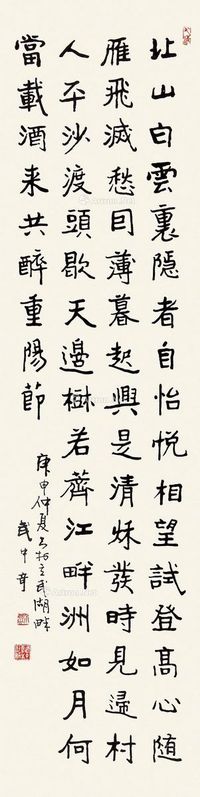 北山白雲裏隱者自怡悅相望試登高心隨
雁飛滅愁因薄暮起興是清秋發時見歸村
人平沙渡頭歇天邊樹若薺江畔洲如月何
當載酒來共醉重陽節
庚申仲夏书於玄武湖畔
武中奇